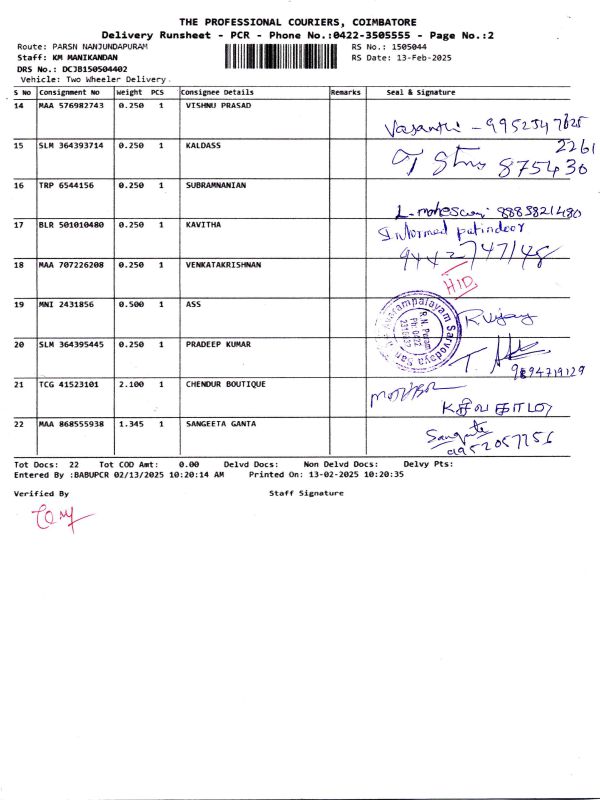 THE PROFESSIONAL COURIERS, COIMBATORE
Delivery Runsheet - PCR - Phone No.:0422-3505555 - Page No.:2
Route: PARSN NANJUNDAPURAM
RS No.: 1505044
Staff: KM MANIKANDAN
RS Date: 13-Feb-2025
DRS No.: DCJB150504402
Vehicle: Two Wheeler Delivery.
S No Consignment No Weight PCS Consignee Details Remarks Seal & Signature
14 MAA 576982743 0.250 1 VISHNU PRASAD
Vasanthi - 9952347625
15 SLM 364393714 0.250 1 KALDASS
2261
875430
16 TRP 6544156 0.250 1 SUBRAMNANIAN
8883821480
17 BLR 501010480 0.250 1 KAVITHA
Informed
9442747148
18 MAA 707226208 0.250 1 VENKATAKRISHNAN
HID
19 MNI 2431856 0.500 1 ASS
Avarampalayam Sarvodaya
R.N. Puram
R. Vijay
20 SLM 364395445 0.250 1 PRADEEP KUMAR
9894719129
21 TCG 41523101 2.100 1 CHENDUR BOUTIQUE
22 MAA 868555938 1.345 1 SANGEETA GANTA
Sangeeta
9952057756
Tot Docs: 22 Tot COD Amt: 0.00 Delvd Docs: Non Delvd Docs: Delvy Pts:
Entered By :BABUPCR 02/13/2025 10:20:14 AM Printed On: 13-02-2025 10:20:35
Verified By Staff Signature